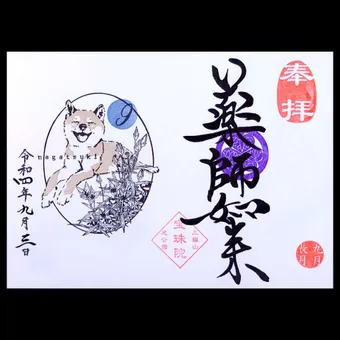 奉拝
薬師如来
九月
長月
三縁山
宝珠院
9
nagatsuki
令和四年九月三日